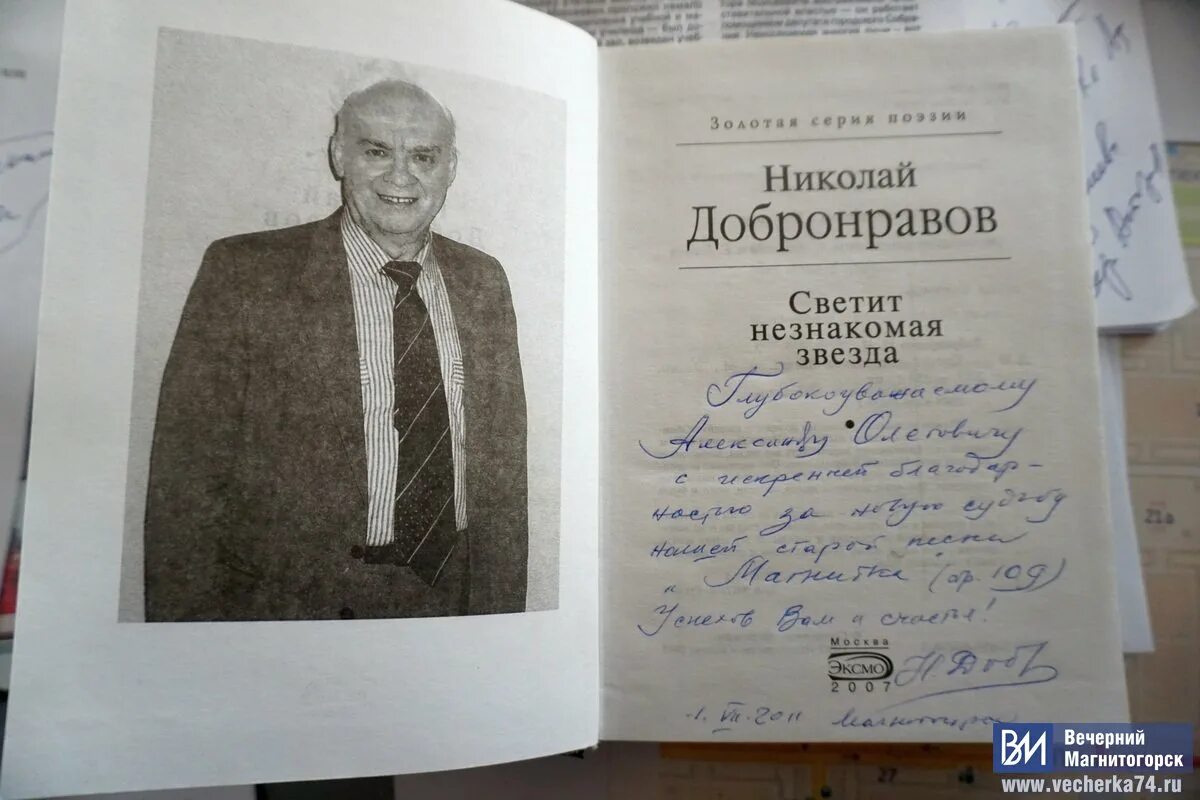 Золотая серия поэзии
Николай
Добронравов
Светит
незнакомая
звезда
Глубокоуважаемому
Александру Олеговичу
с искренней благодар-
ностью за новую судьбу
нашей старой песни
"Магнитка" (стр. 109)
Успехов Вам и счастья!
Москва
ЭКСМО
2007
Н. Добр
1. VII. 2011 Магнитогорск
21а
27
ВИ Вечерний
Магнитогорск
www.vecherka74.ru